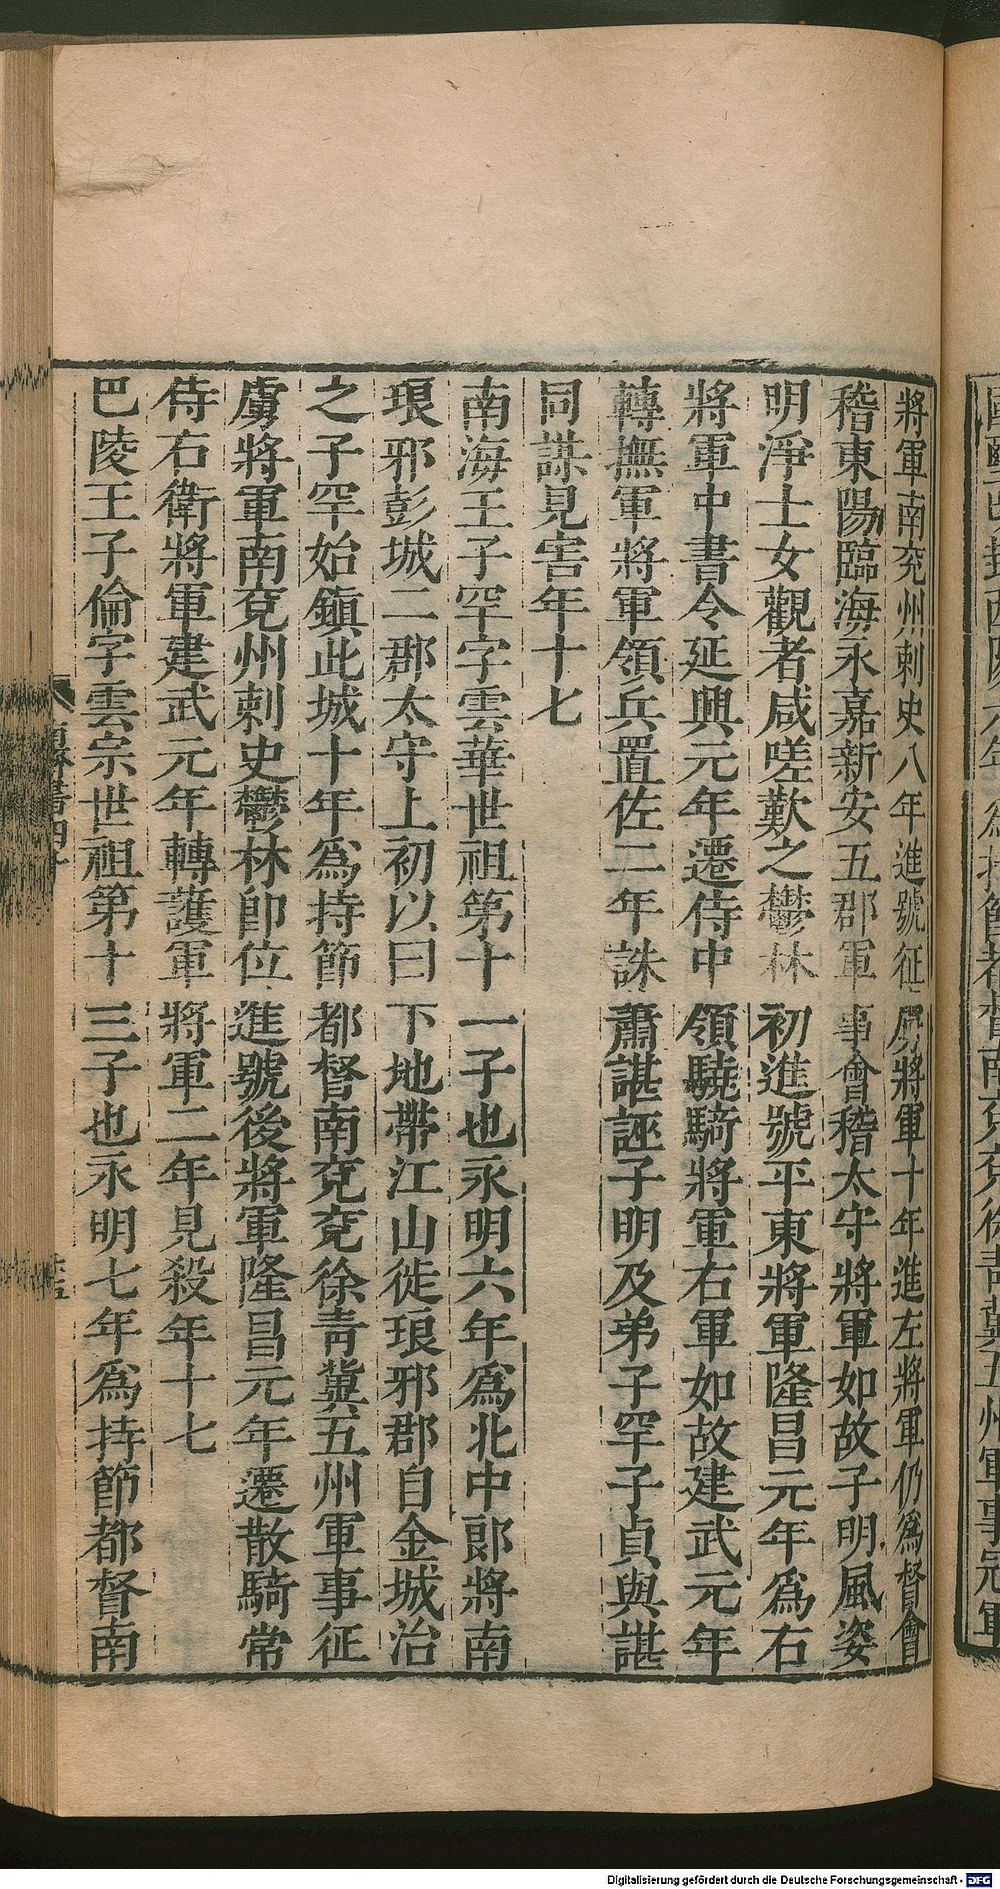 將軍南兖州刺史八年進號征虜將軍十年進左將軍仍爲督會
稽東陽臨海永嘉新安五郡軍事會稽太守將軍如故子明風姿
明淨士女觀者咸嗟歎之鬱林初進號平東將軍隆昌元年爲右
將軍中書令延興元年遷侍中領驍騎將軍右軍如故建武元年
轉撫軍將軍領兵置佐二年誅蕭諶誣子明及弟子罕子貞與諶
同謀見害年十七
南海王子罕字雲華世祖第十一子也永明六年爲北中郎將南
琅邪彭城二郡太守上初以曰下地帶江山徙琅邪郡自金城治
之子罕始鎮此城十年爲持節都督南兖兖徐青冀五州軍事征
虜將軍南兖州刺史鬱林卽位進號後將軍隆昌元年遷散騎常
侍右衛將軍建武元年轉護軍將軍二年見殺年十七
巴陵王子倫字雲宗世祖第十三子也永明七年爲持節都督南
Digitalisierung gefördert durch die Deutsche Forschungsgemeinschaft - DFG